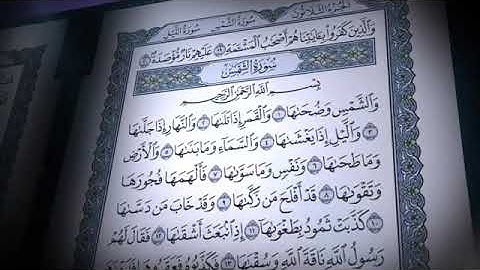 الجزء الثلاثون سورة الشمس سورة الليل
وَالَّذِينَ كَفَرُوا بِـَٔايَـٰتِنَا هُمْ أَصْحَـٰبُ الْمَشْـَٔمَةِ ١٩ عَلَيْهِمْ نَارٌ مُّؤْصَدَةٌ ٢٠
سُورَةُ الشَّمْسِ
بِسْمِ اللَّهِ الرَّحْمَـٰنِ الرَّحِيمِ
وَالشَّمْسِ وَضُحَىٰهَا ١ وَالْقَمَرِ إِذَا تَلَىٰهَا ٢ وَالنَّهَارِ إِذَا جَلَّىٰهَا
٣ وَالَّيْلِ إِذَا يَغْشَىٰهَا ٤ وَالسَّمَآءِ وَمَا بَنَىٰهَا ٥ وَالْأَرْضِ
وَمَا طَحَىٰهَا ٦ وَنَفْسٍ وَمَا سَوَّىٰهَا ٧ فَأَلْهَمَهَا فُجُورَهَا
وَتَقْوَىٰهَا ٨ قَدْ أَفْلَحَ مَن زَكَّىٰهَا ٩ وَقَدْ خَابَ مَن دَسَّىٰهَا
١٠ كَذَّبَتْ ثَمُودُ بِطَغْوَىٰهَا ١١ إِذِ انۢبَعَثَ أَشْقَىٰهَا ١٢ فَقَالَ لَهُمْ
رَسُولُ اللَّهِ نَاقَةَ اللَّهِ وَسُقْيَـٰهَا ١٣ فَكَذَّبُوهُ فَعَقَرُوهَا